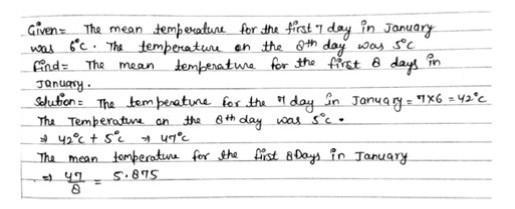 Given= The mean temperature for the first 7 day in January
was 6°c. The temperature on the 8th day was 5°c
find= The mean temperature for the first 8 days in
January.
Solution= The temperature for the 7 day in January = 7x6 = 42°c
The Temperature on the 8th day was 5°c.
⇒ 42°c + 5°c → 47°c
The mean temperature for the first 8Days in January
⇒ 47/8 = 5.875